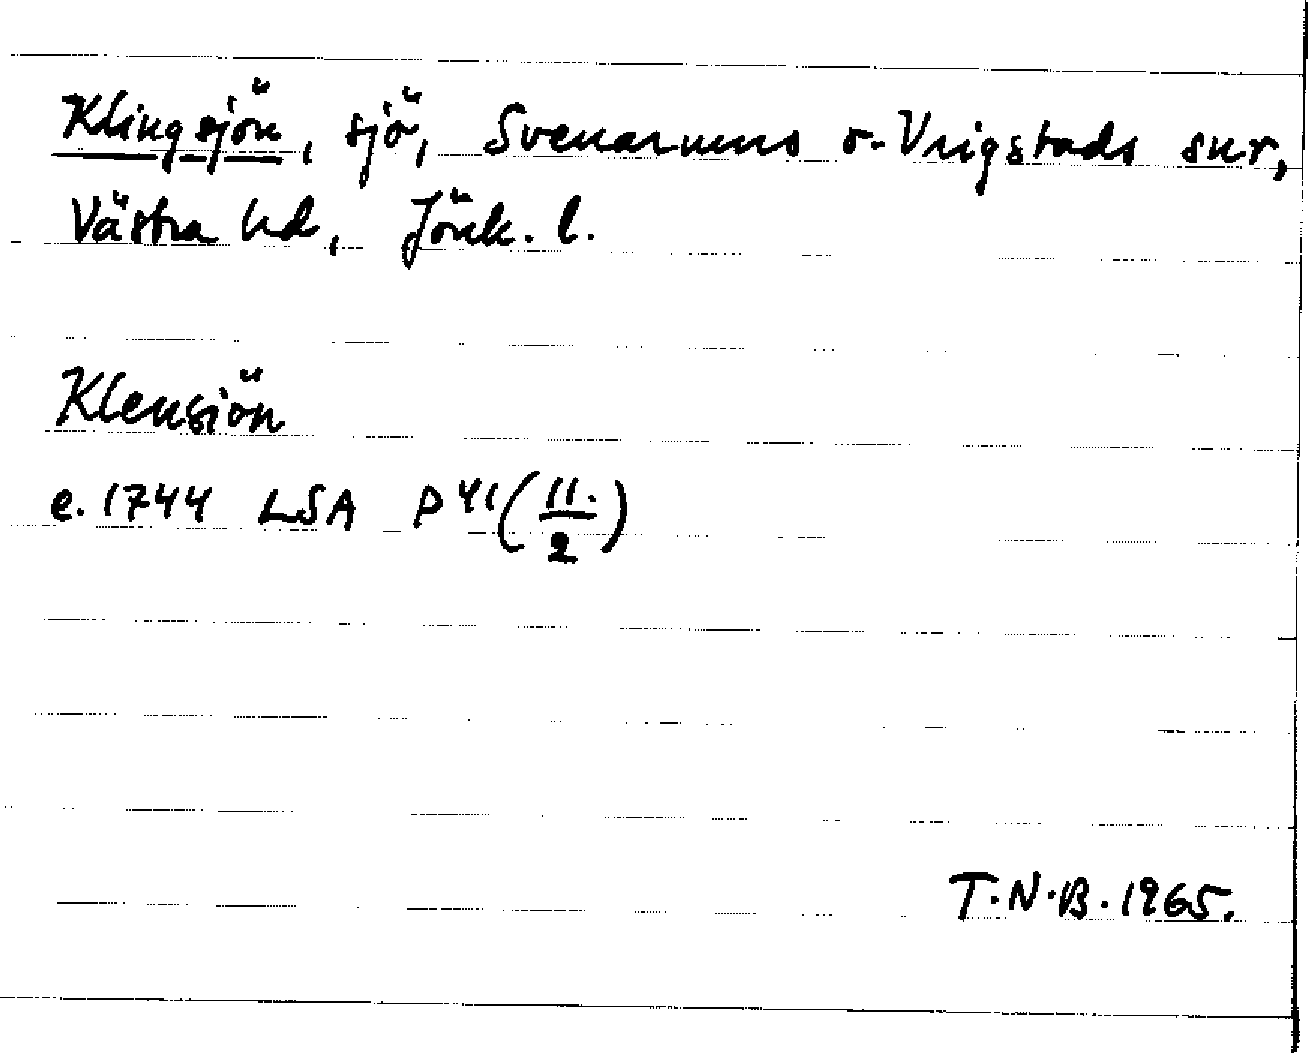 Klingsjön, sjö, Svenarums o. Vrigstads snr,
Västra hd, Jönk. l.
Klensiön
e. 1744 LSA P 41 (11./2)
T.N.B. 1965.